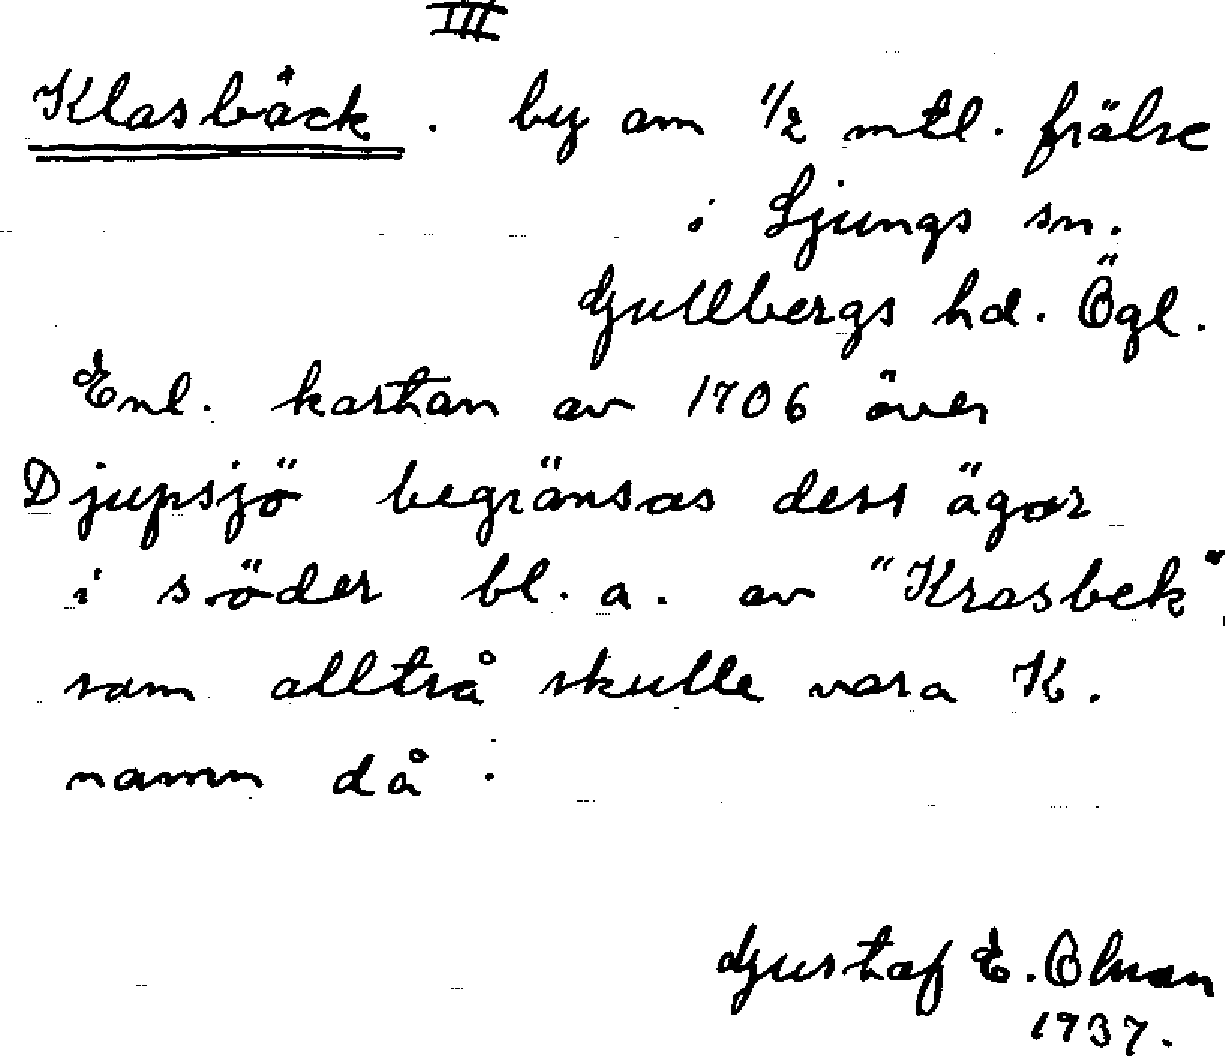 III
Klasbäck. by om 1/2 mtl. frälse
i Ljungs sn.
Gullbergs hd. Ögl.
Enl. kartan av 1706 över
Djupsjö begränsas dess ägor
i söder bl. a. av "Krasbek"
som alltså skulle vara K.
namn då.
Gustaf E. Olman
1937.